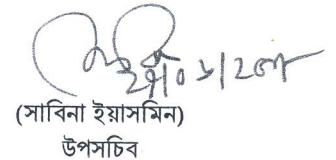 (সাবিনা ইয়াসমিন)
উপসচিব